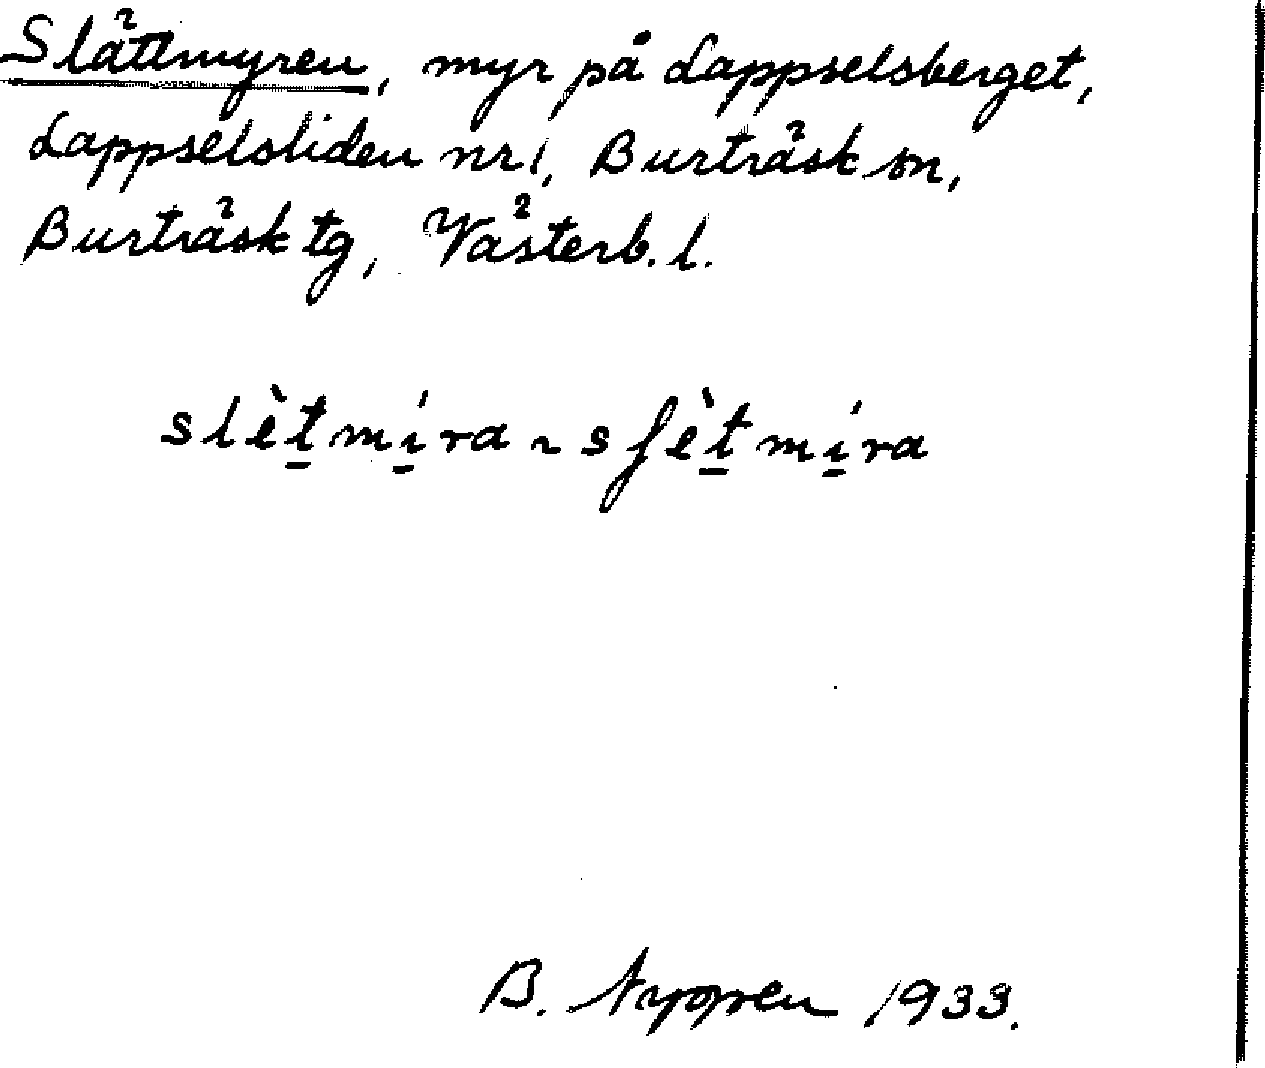 Slättmyren, myr på Lappselsberget,
Lappselsliden nr 1, Burträsk sn,
Burträsk tg, Västerb. l.
slèt̠mí̠ra ~ sʃèt̠mí̠ra
B. 1933.